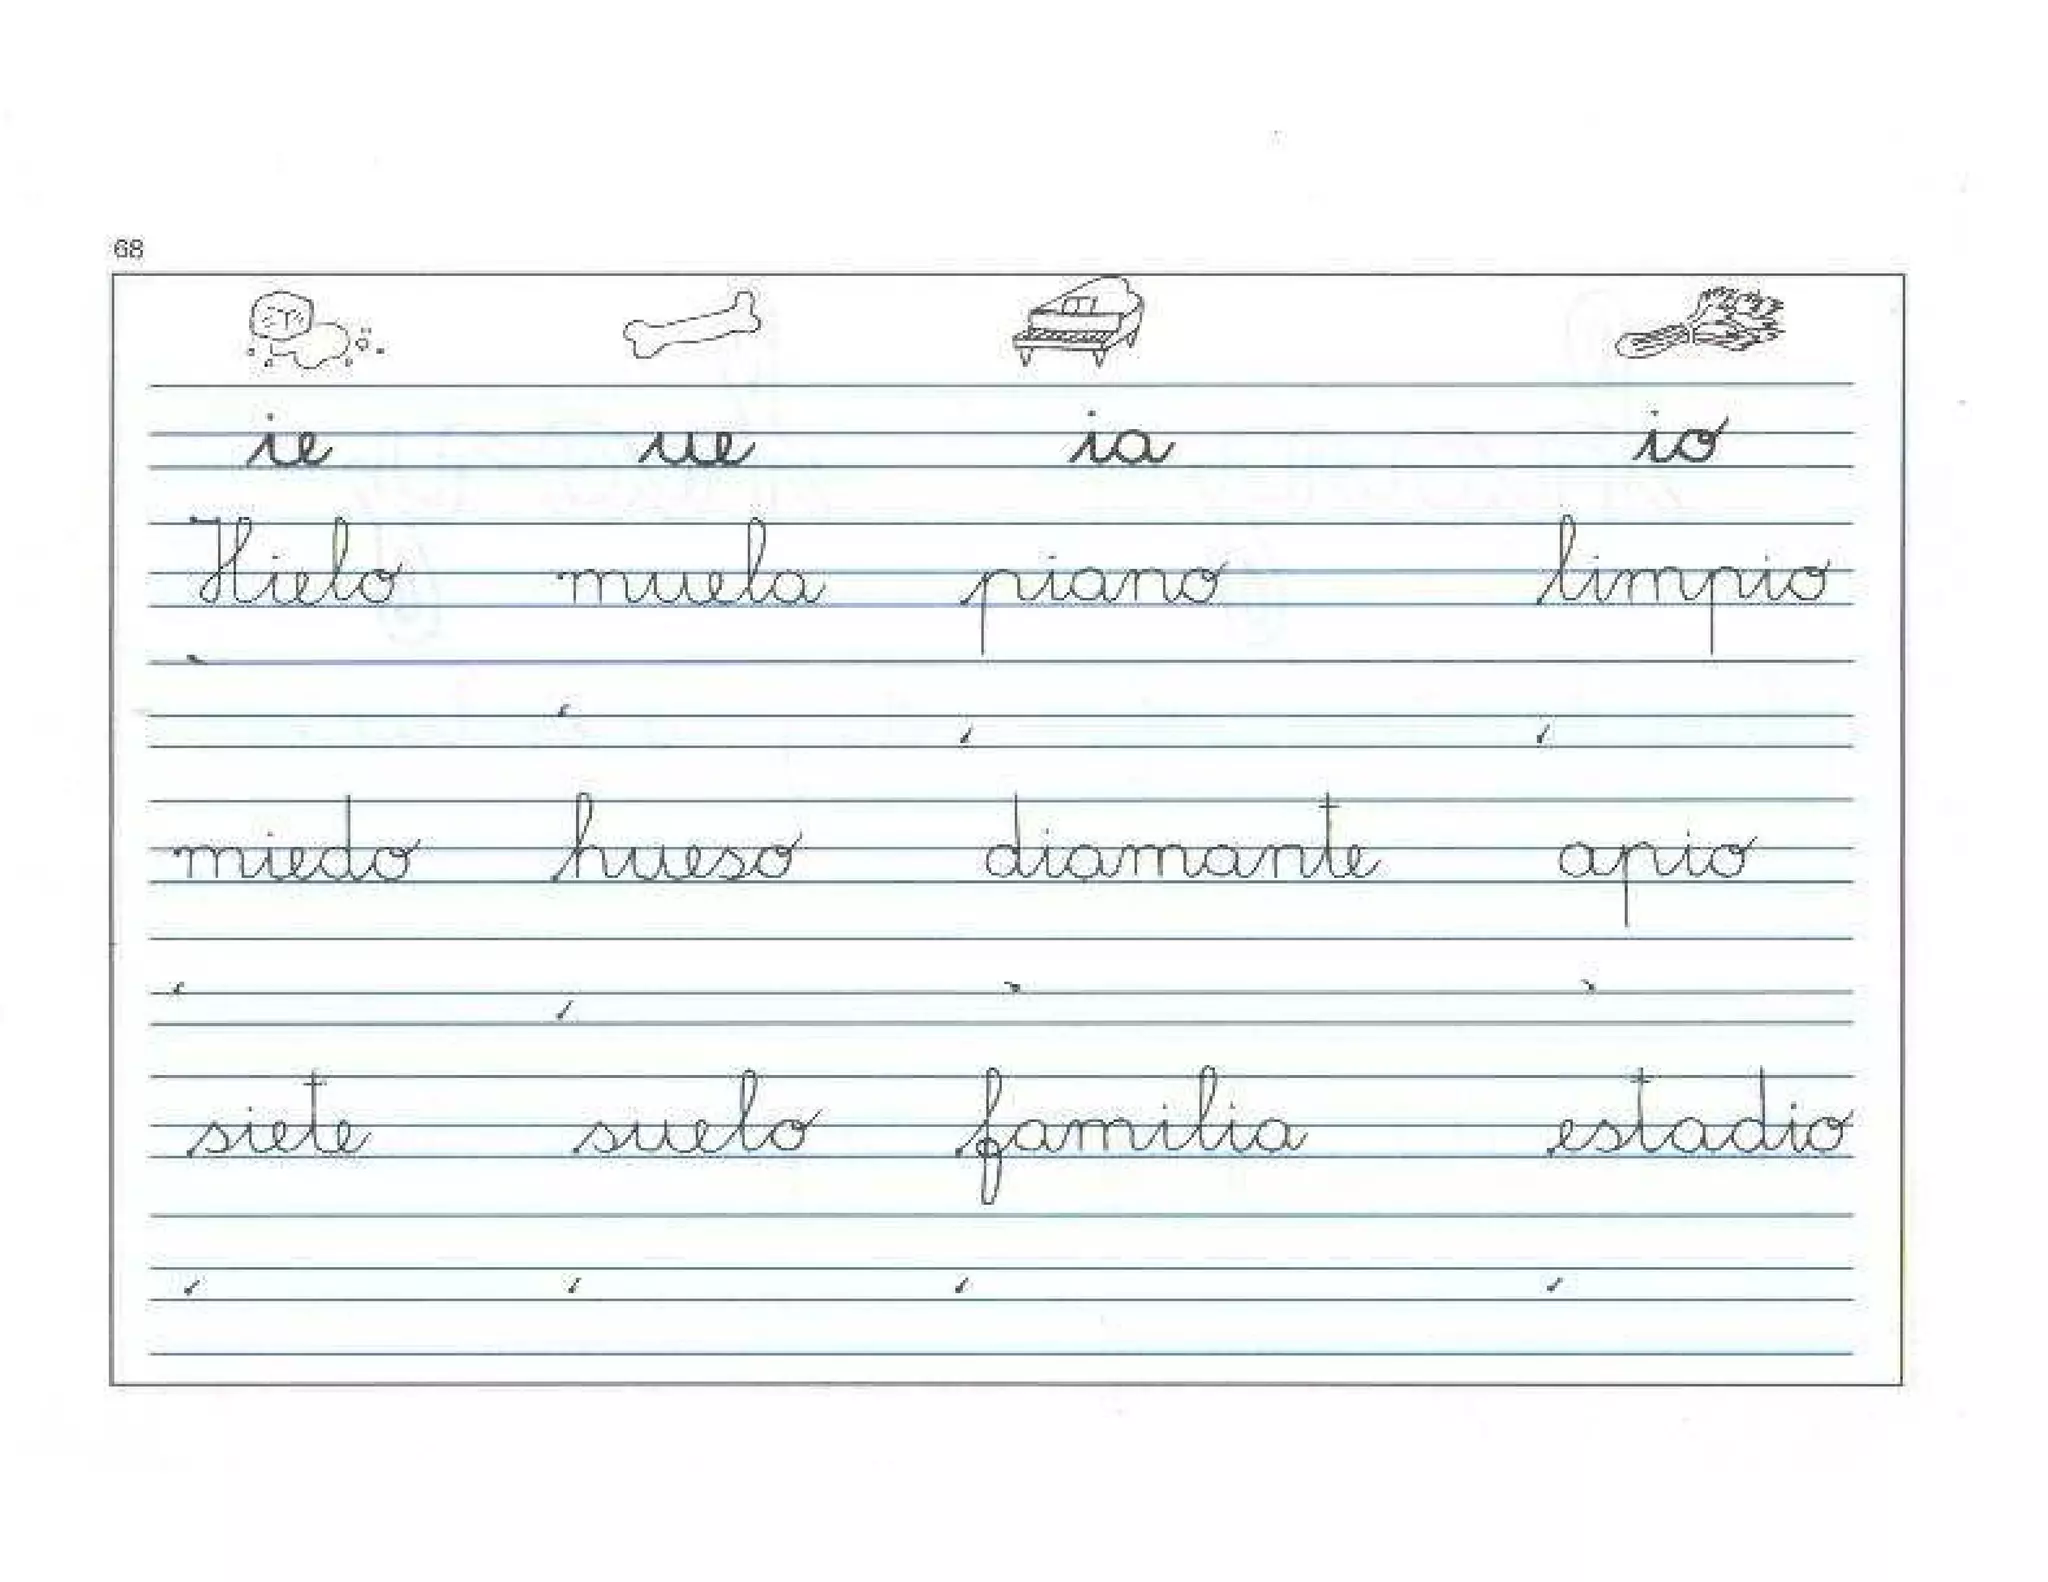 68
ie ue ia io
Hielo muela piano limpio
miedo hueso diamante apio
siete suelo familia estadio